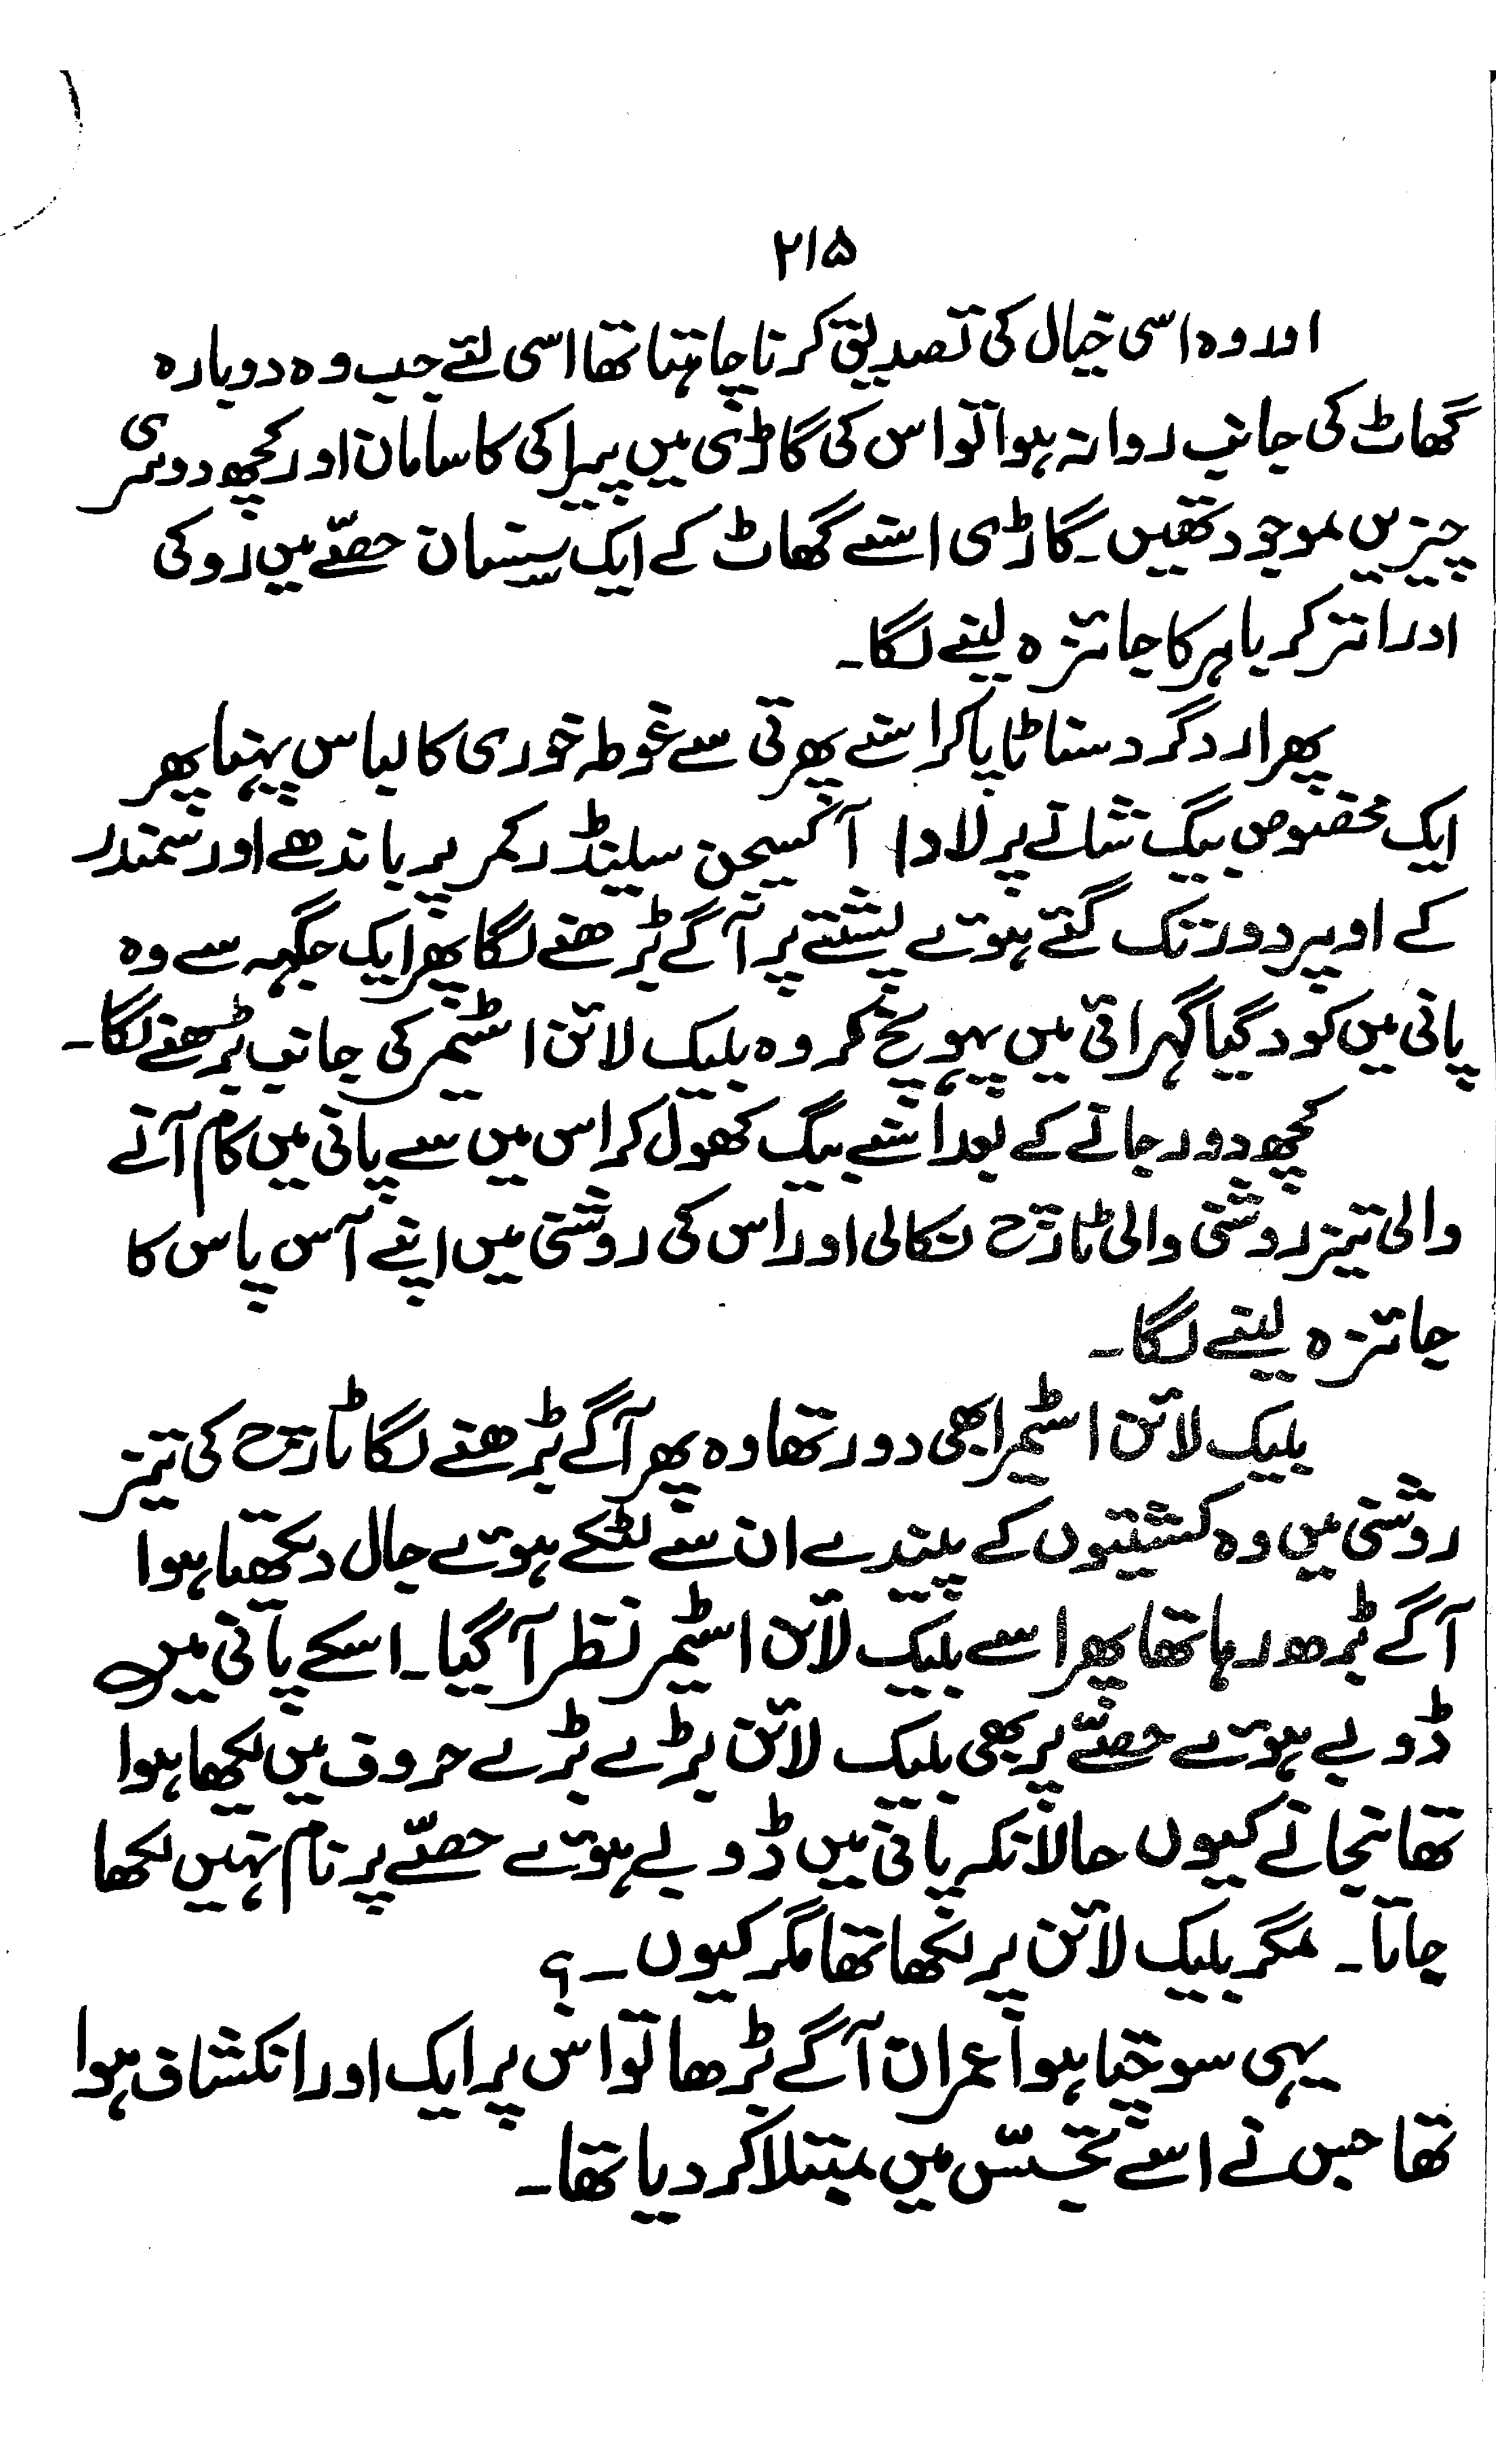 ۲۱۵
اور وہ اسی خیال کی تصدیق کرنا چاہتا تھا اسی لئے جب وہ دوبارہ
گھاٹ کی جانب روانہ ہوا تو اس کی گاڑی میں پیراکی کا سامان اور کچھ دوسری
چیزیں موجود تھیں۔ گاڑی اسنے گھاٹ کے ایک سنسان حصّے میں روکی
اور اتر کر باہر کا جائزہ لینے لگا۔
پھر ارد گرد سناٹا پاکر اسنے پھرتی سے غوطہ خوری کا لباس پہنا پھر
ایک مخصوص بیگ شانے پر لادا آکسیجن سلینڈر کمر پر باندھے اور سمندر
کے اوپر دور تک گئے ہوئے پشتے پر آگے بڑھنے لگا پھر ایک جگہہ سے وہ
پانی میں کود گیا گہرائی میں پہونچ کر وہ بلیک لائن اسٹیمر کی جانب بڑھنے لگا۔
کچھ دور جانے کے بعد اسنے بیگ کھول کر اس میں سے پانی میں کام آنے
والی تیز روشنی والی ٹارچ نکالی اور اس کی روشنی میں اپنے آس پاس کا
جائزہ لینے لگا۔
بلیک لائن اسٹیمر ابھی دور تھا وہ پھر آگے بڑھنے لگا ٹارچ کی تیز
روشنی میں وہ کشتیوں کے پیندے ان سے لٹکے ہوئے جال دیکھتا ہوا
آگے بڑھ رہا تھا پھر اسے بلیک لائن اسٹیمر نظر آگیا۔ اسکے پانی میں
ڈوبے ہوئے حصّے پر بھی بلیک لائن بڑے بڑے حروف میں لکھا ہوا
تھا نجانے کیوں حالانکہ پانی میں ڈوبے ہوئے حصّے پر نام نہیں لکھا
جاتا۔ مگر بلیک لائن پر لکھا تھا مگر کیوں۔؟
یہی سوچتا ہوا عمران آگے بڑھا تو اس پر ایک اور انکشاف ہوا
تھا جس نے اسے تجسّس میں مبتلا کر دیا تھا۔